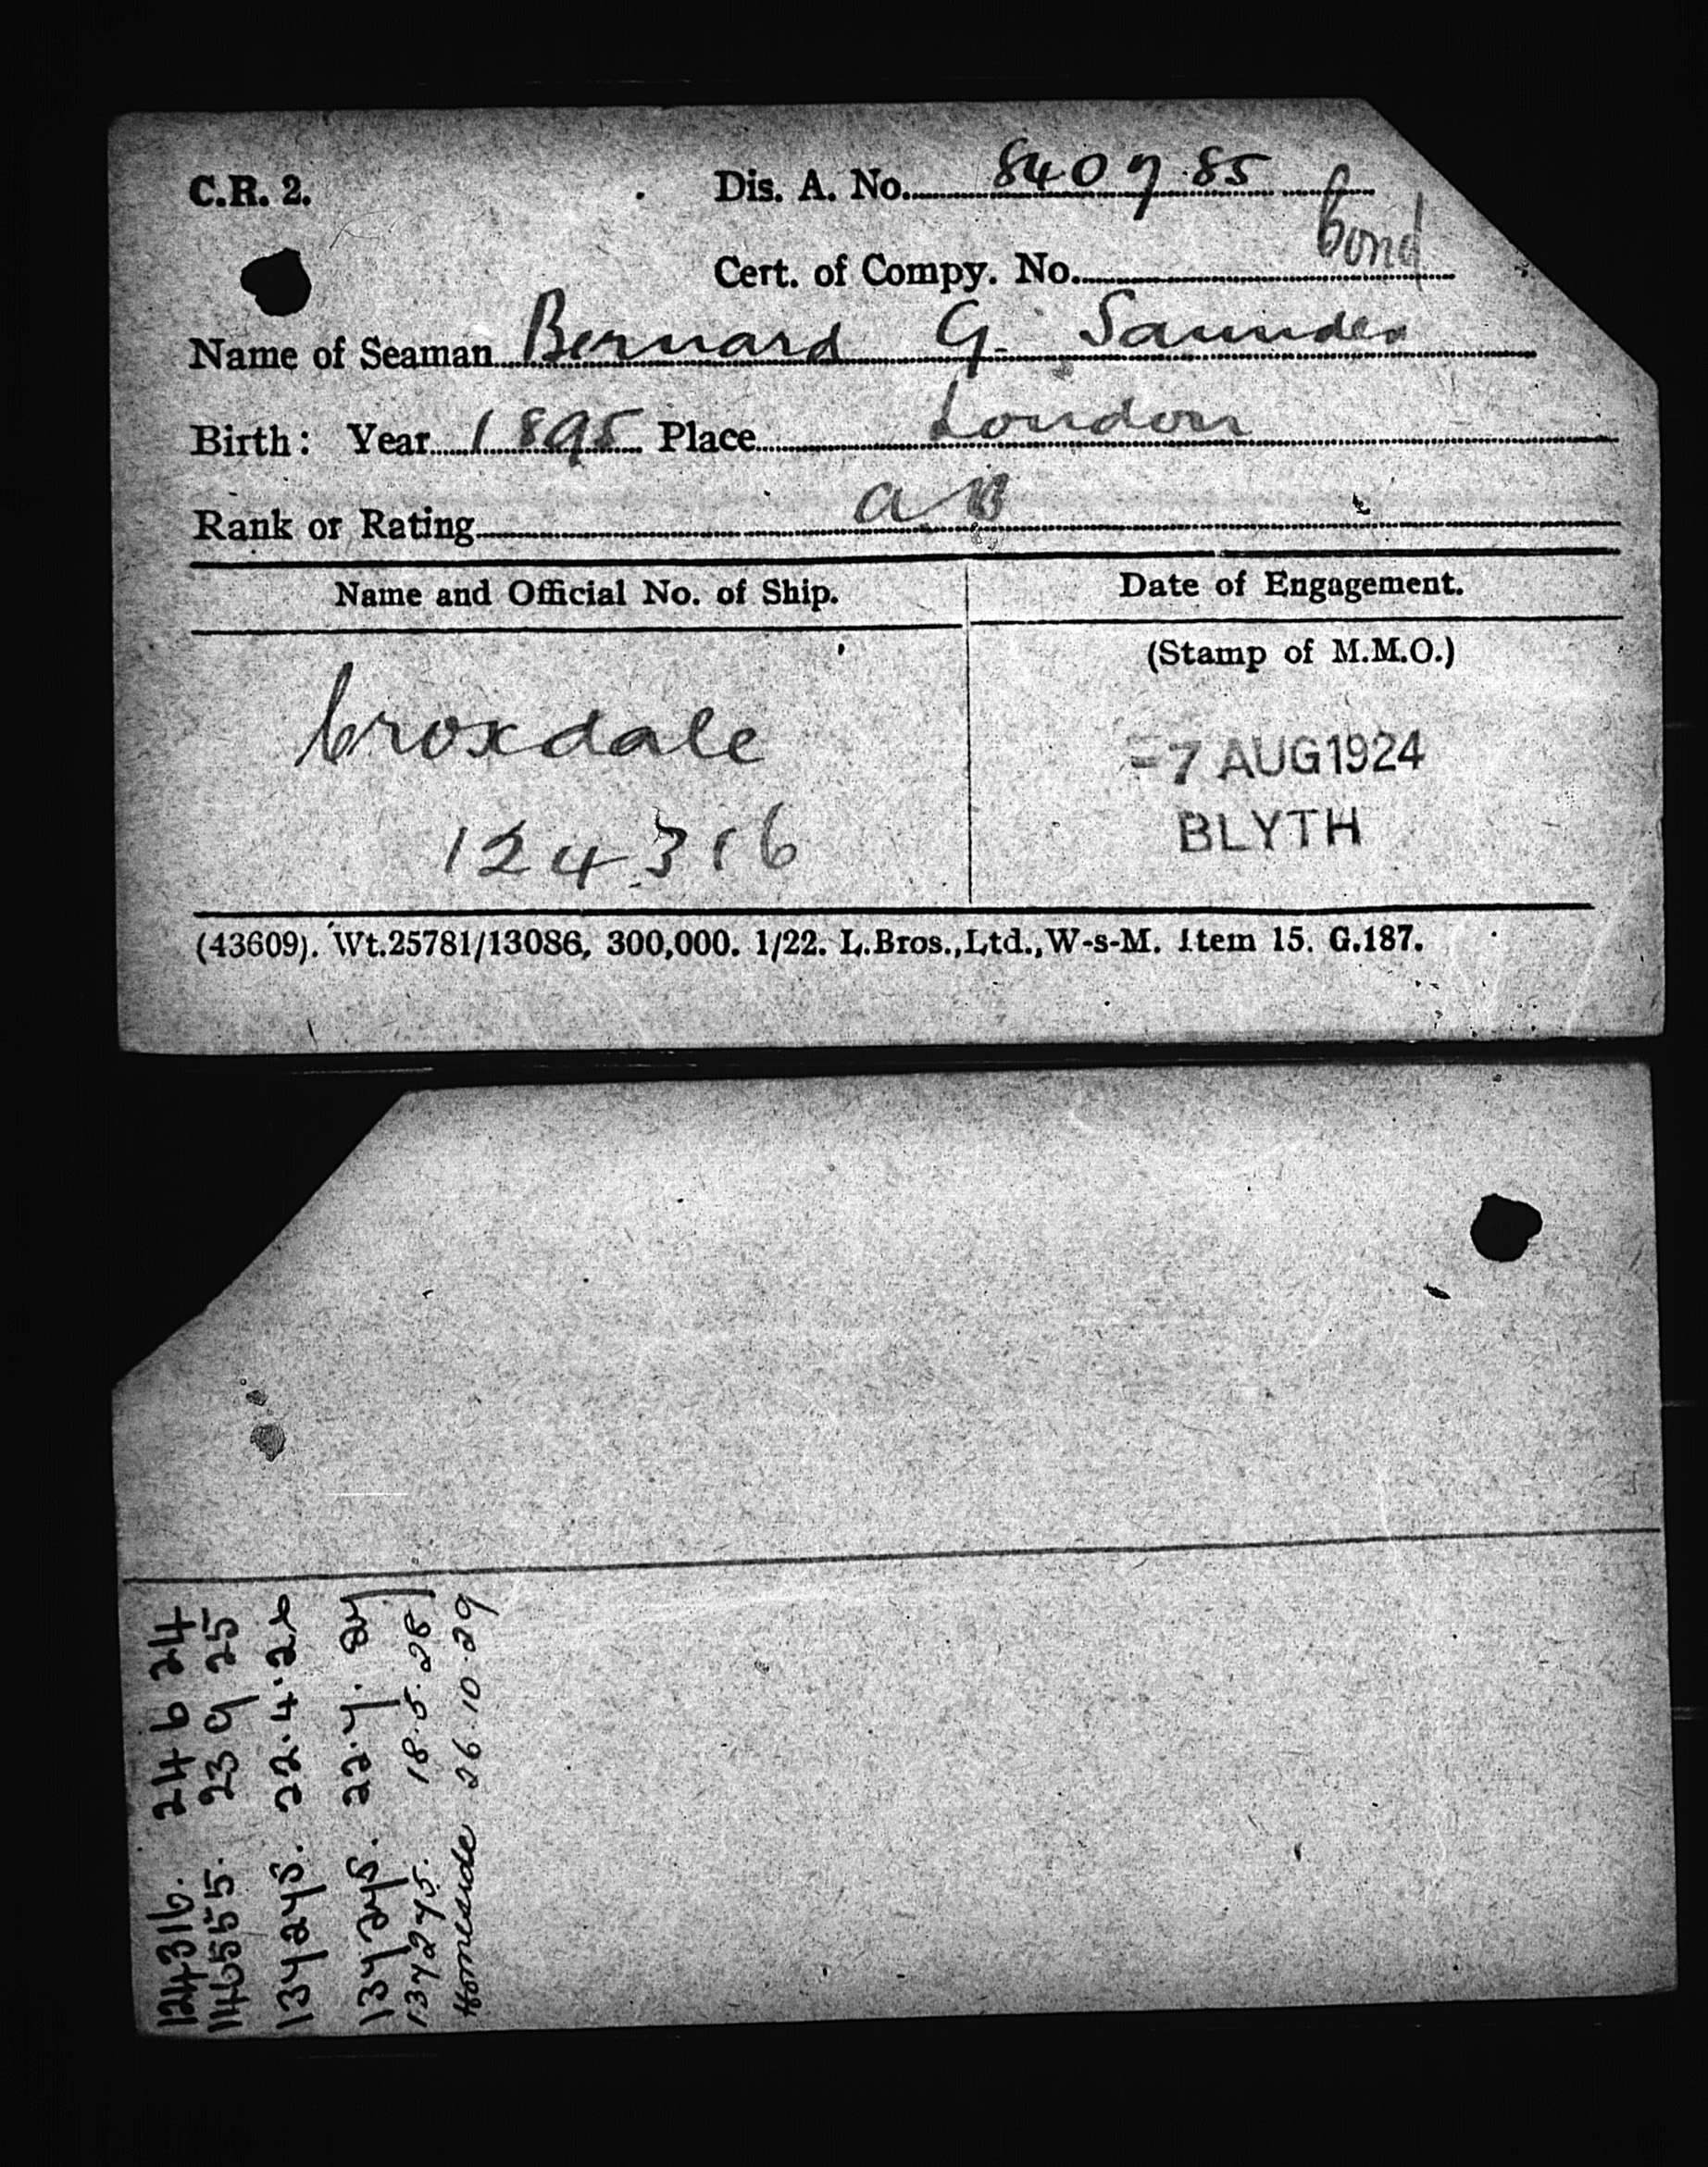 C.R. 2.
Dis. A. No. 840785
bond
Cert. of Compy. No.
Name of Seaman Bernard G. Saunders
Birth: Year 1895 Place London
Rank or Rating AB
Name and Official No. of Ship.
Date of Engagement.
(Stamp of M.M.O.)
Croxdale
124316
-7 AUG 1924
BLYTH
(43609). Wt.25781/13086, 300,000. 1/22. L.Bros.,Ltd.,W-s-M. Item 15. G.187.
124316. 24 6 24
146555. 23 9 25
137275. 22.4.26
137275. 22.7.27
137275. 18.5.28
Homeside 26.10.29